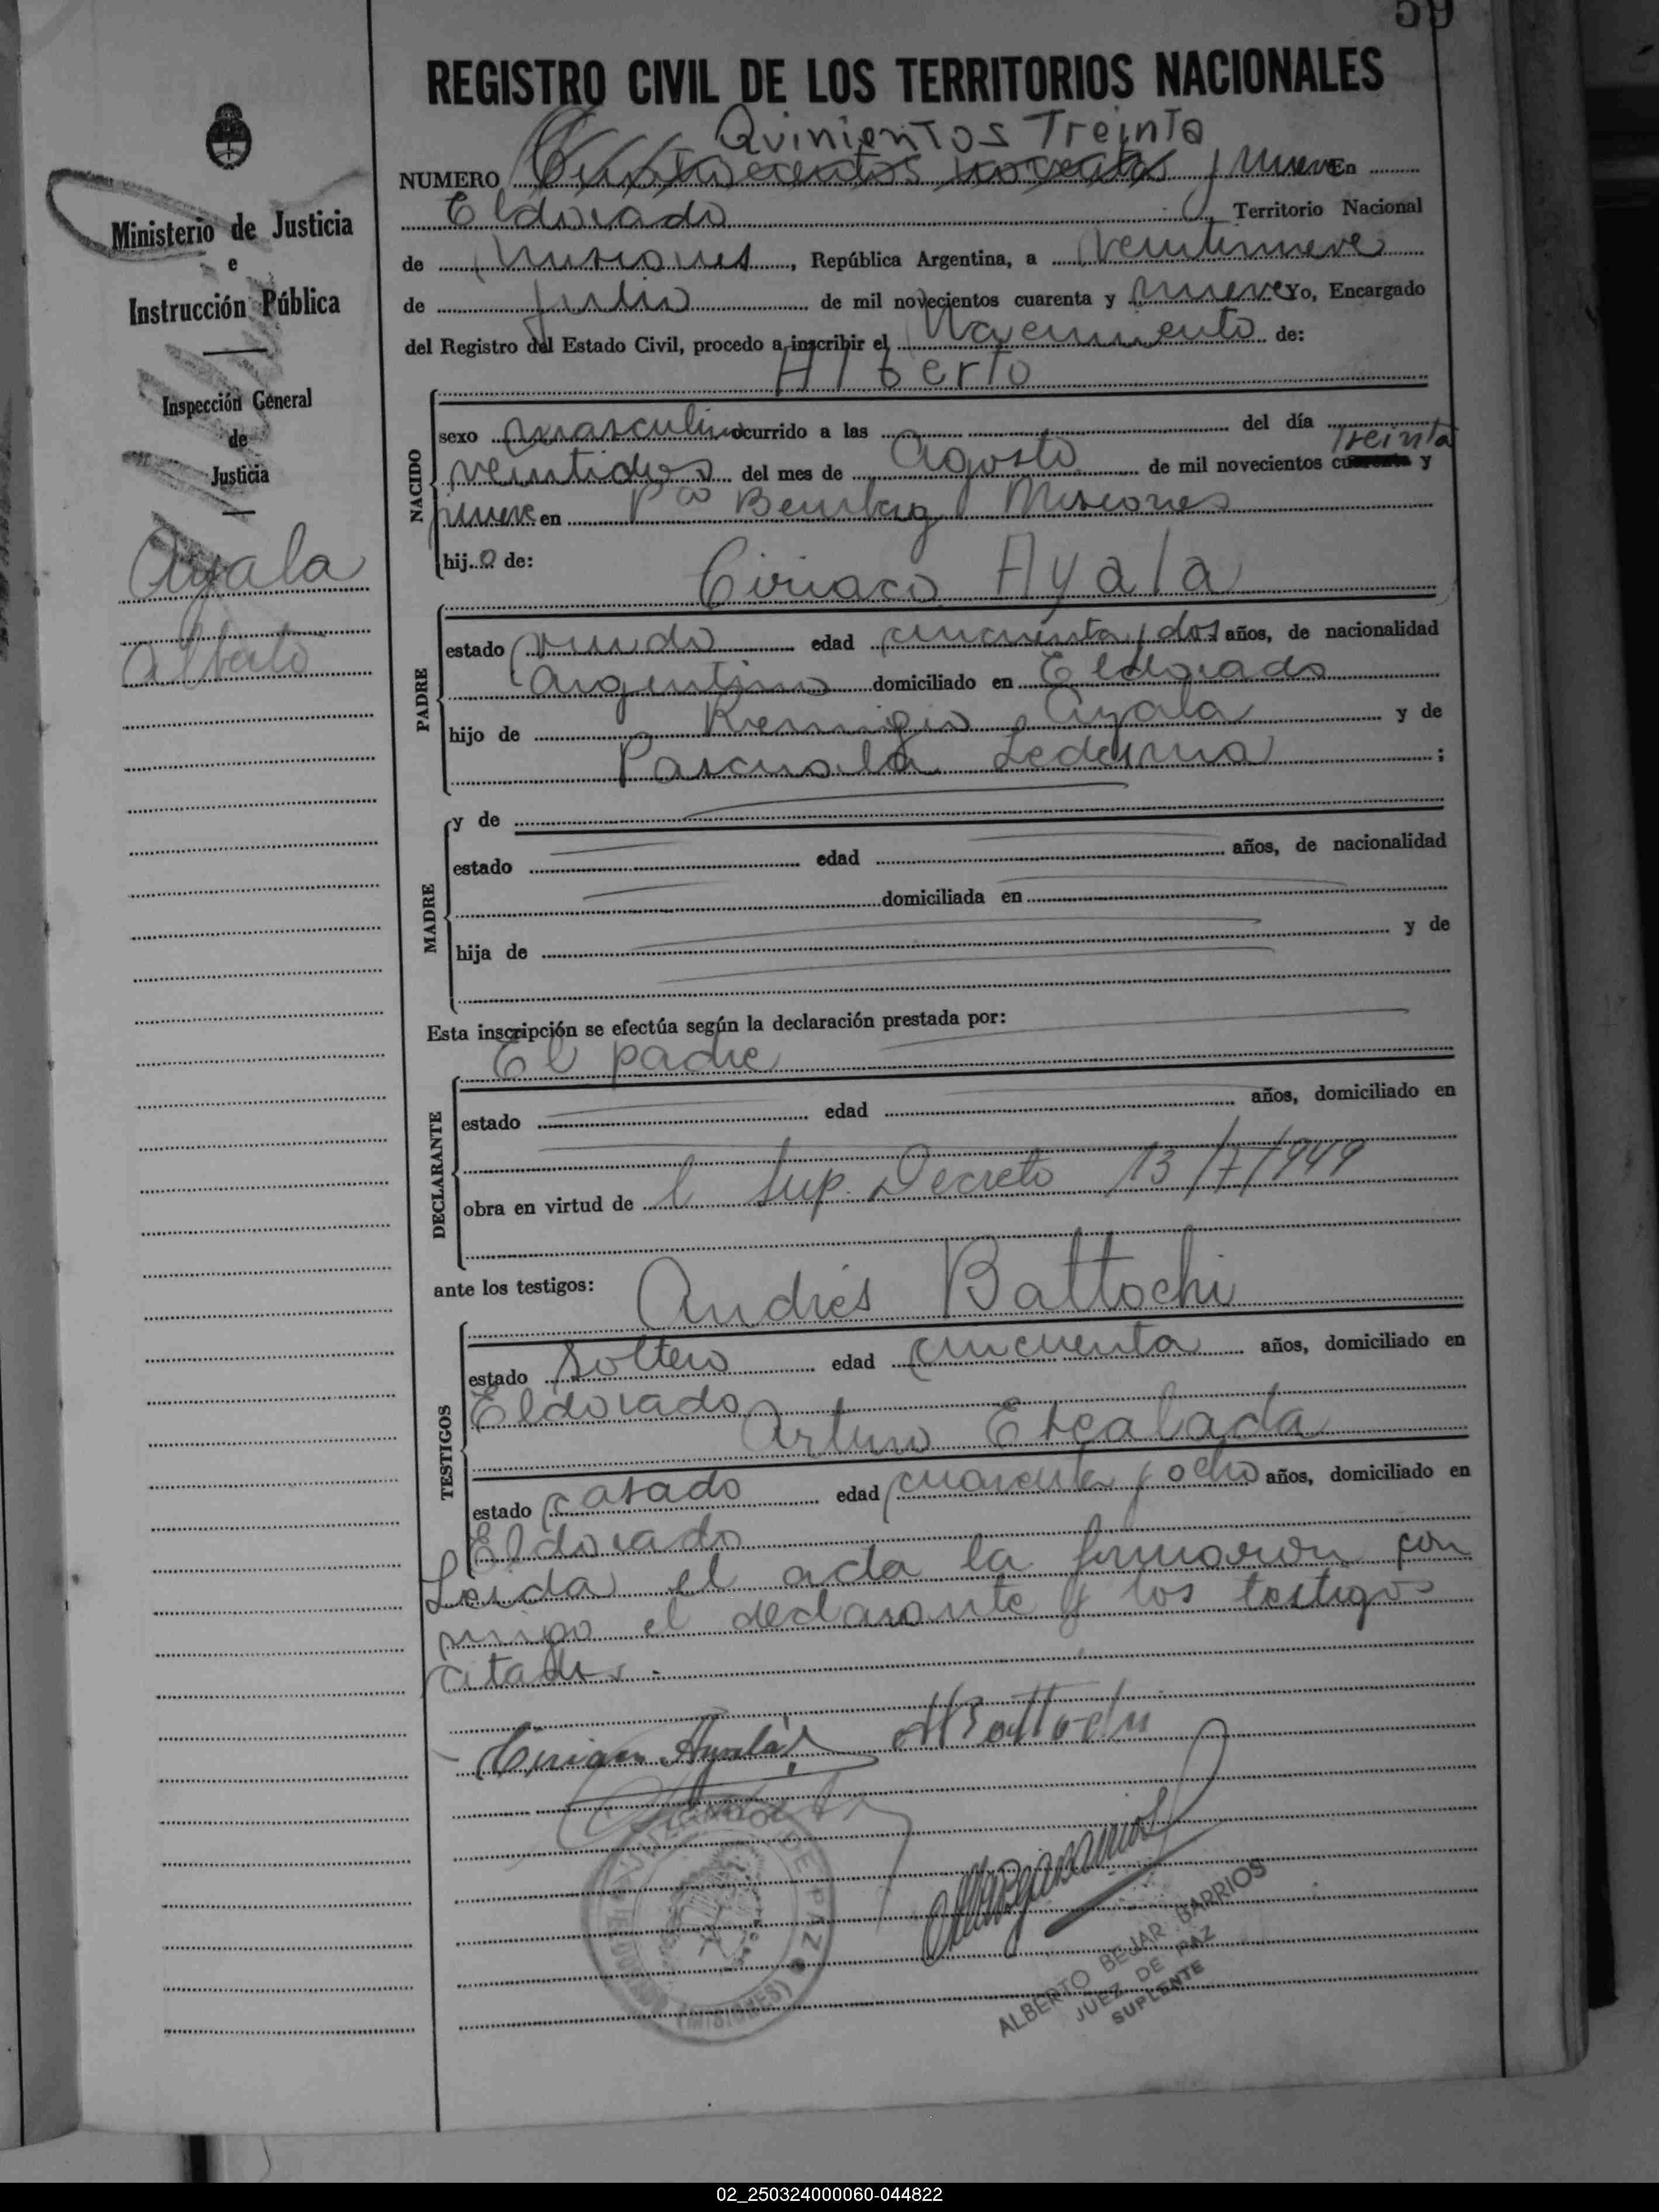 59
REGISTRO CIVIL DE LOS TERRITORIOS NACIONALES
Quinientos Treinta
NUMERO Cuatrocientos noventa y nueve En
Eldorado, Territorio Nacional
de Misiones, República Argentina, a veintinueve
de Julio de mil novecientos cuarenta y nueve Yo, Encargado
del Registro del Estado Civil, procedo a inscribir el Nacimiento de:
Alberto
NACIDO
sexo masculino ocurrido a las del día
Treinta
veintidos del mes de Agosto de mil novecientos cuarenta y
nueve en Pto Bemberg Misiones
hijo de: Ciriaco Ayala
PADRE
estado viudo edad cincuenta y dos años, de nacionalidad
argentino domiciliado en Eldorado
hijo de Remigio Ayala y de
Pascuala Ledesma ;
MADRE
y de
estado edad años, de nacionalidad
domiciliada en
hija de y de
Esta inscripción se efectúa según la declaración prestada por:
El padre
DECLARANTE
estado edad años, domiciliado en
obra en virtud de l Sup. Decreto 13/7/949
ante los testigos: Andrés Battochi
TESTIGOS
estado Soltero edad cincuenta años, domiciliado en
Eldorado
Arturo Escalada
estado casado edad cuarenta y ocho años, domiciliado en
Eldorado
Leida el acta la firmaron con
migo el declarante y los testigos
citados.
Ciriaco Ayala ABattochi
JUZGADO DE PAZ
ELDORADO (MISIONES)
ALBERTO BEJAR BARRIOS
JUEZ DE PAZ
SUPLENTE
Ministerio de Justicia
e
Instrucción Pública
Inspección General
de
Justicia
Ayala
Alberto
02_250324000060-044822